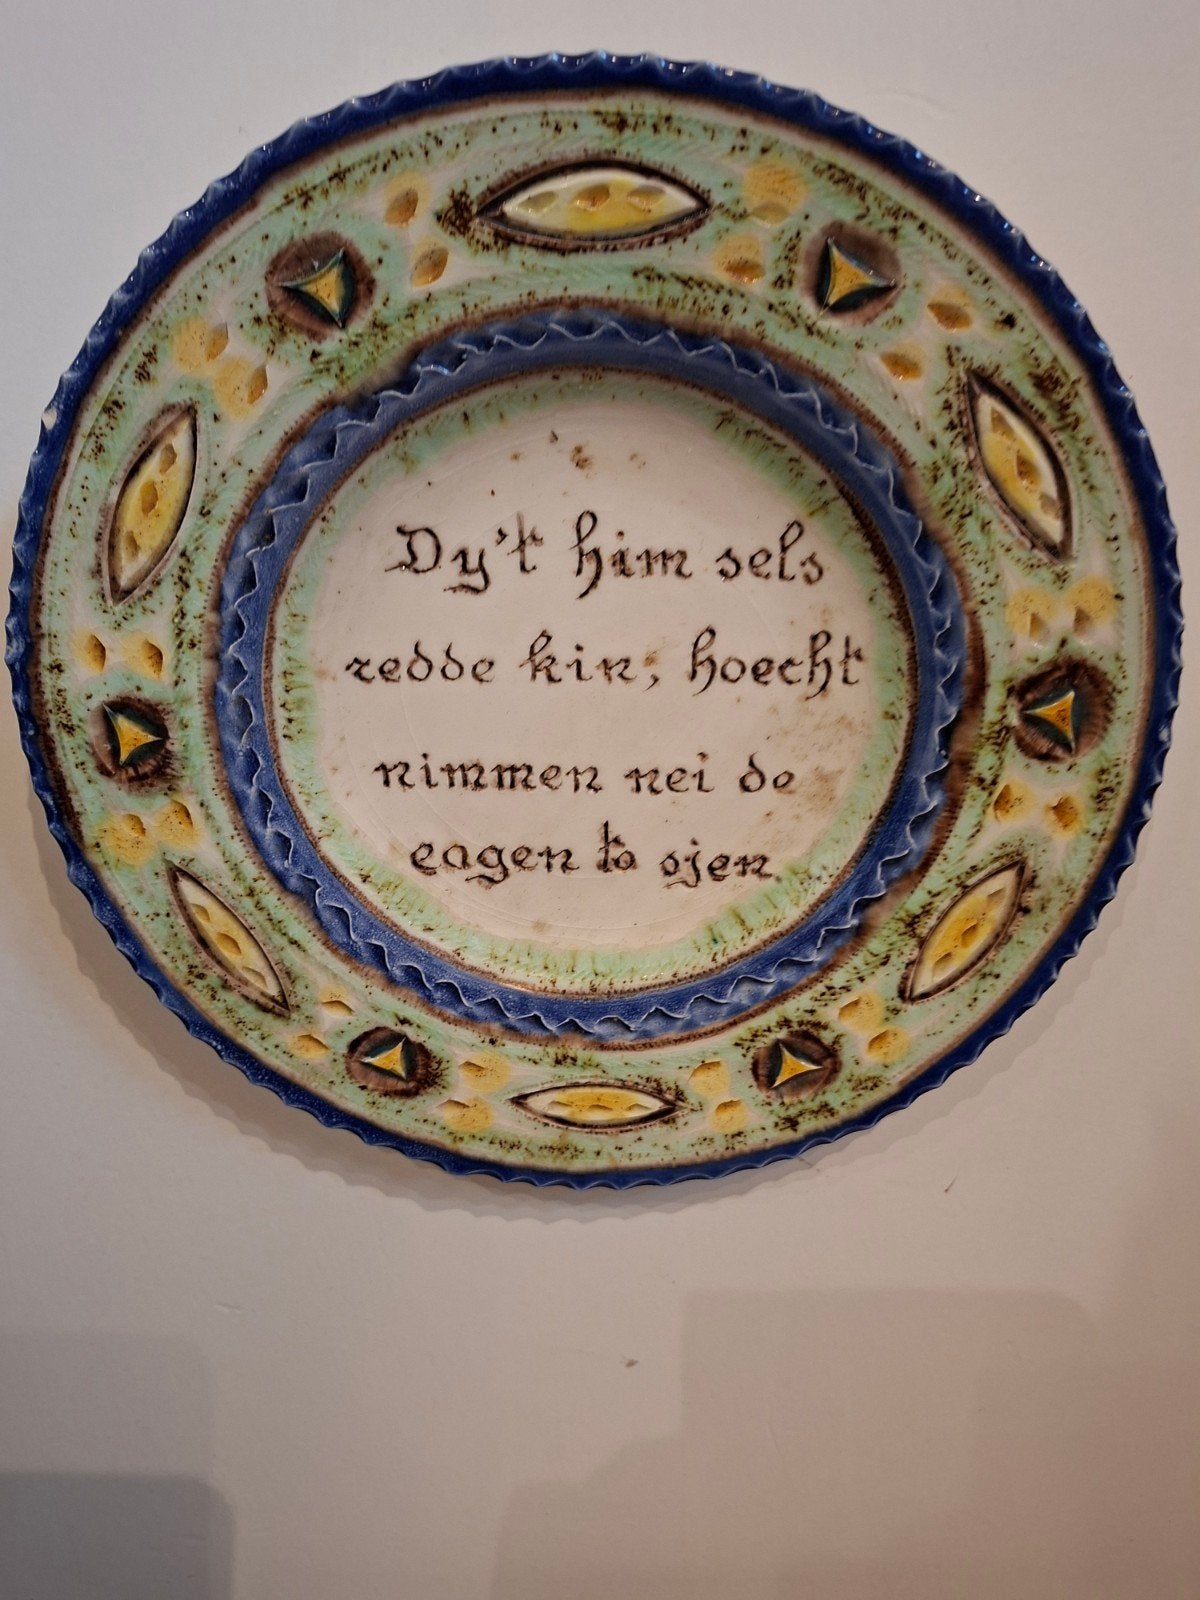 Dy't him sels
redde kin, hoecht
nimmen nei de
eagen to sjen